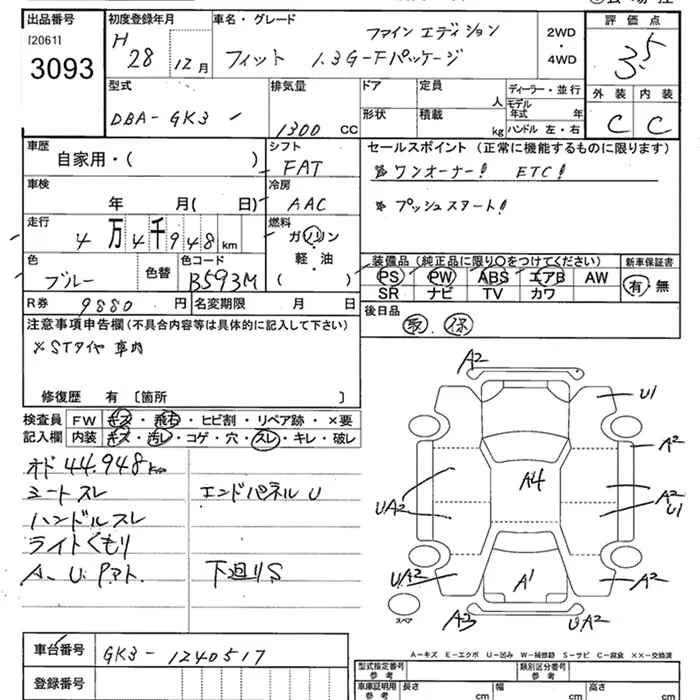 出品番号 初度登録年月 車名・グレード 評価点
[2061] H ファインエディション 2WD
3093 28年 12月 フィット 1.3G-Fパッケージ ・ 3.5
4WD
型式 排気量 ドア 定員 ディーラー・並行 外装 内装
DBA-GK3 人 モデル年式 年 C C
1300 CC 形状 積載 kg ハンドル 左・右
車歴 シフト セールスポイント (正常に機能するものに限ります)
自家用・( ) FAT ※ ワンオーナー! ETC!
車検 冷房
年 月( 日) AAC ※ プッシュスタート!
走行 燃料
4万4千948km ガソリン
軽・油
( )
色 色替 色コード 装備品 (純正品に限り○をつけてください) 新車保証書
ブルー B593M PS PW ABS エアB AW 有・無
SR ナビ TV カワ
R券 9880円 名変期限 月 日 後日品
取. 保
注意事項申告欄 (不具合内容等は具体的に記入して下さい)
※STタイヤ 車内
修復歴 有 〔箇所 〕
検査員 FW キズ・飛石・ヒビ割・リペア跡・×要
記入欄 内装 キズ・汚レ・コゲ・穴・スレ・キレ・破レ
オド 44.948km
シートスレ エンドパネル U
ハンドルスレ
ライトくもり
A. U. Pアト. 下廻りS
A2
U1
A2
A4
UA2 A2
U1
UA2 A1 A2
スペア A3 UA2
A-キズ E-エクボ U-凹み W-補修跡 S-サビ C-腐食 ××-交換済
車台番号 GK3-1240517
型式指定番号 参考 類別区分番号 参考
登録番号 車庫証明用 参考 長さ cm 幅 cm 高さ cm